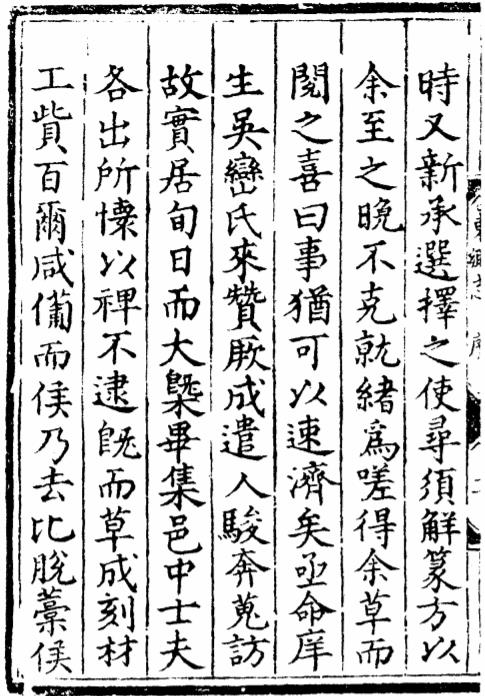 時又新承選擇之使尋須解篆方以
余至之晚不克就緒為嗟得余草而
閱之喜曰事猶可以速濟矣亟命庠
生吳巒氏來贊厥成遣人駿奔蒐訪
故實居旬日而大槩畢集邑中士夫
各出所懷以裨不逮旣而草成刻材
工貲百爾咸僃而侯乃去比脫藁侯